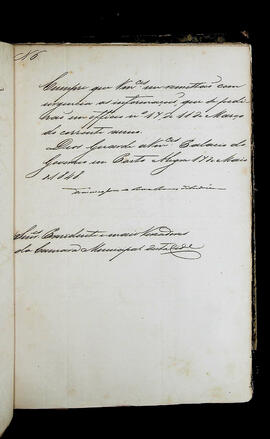 N6
Cumpre que Vm.ces me remettão com
urgencia as informaçoes, que se pedi
rão em officio nº 17 de 11 de Março
do corrente anno.
Deos Guarde a Vm.ces Palacio do
Governo em Porto Alegre 17 de Maio
de 1848
Senr.es Presidente e mais Vereadores
da Camara Municipal desta Cid.e